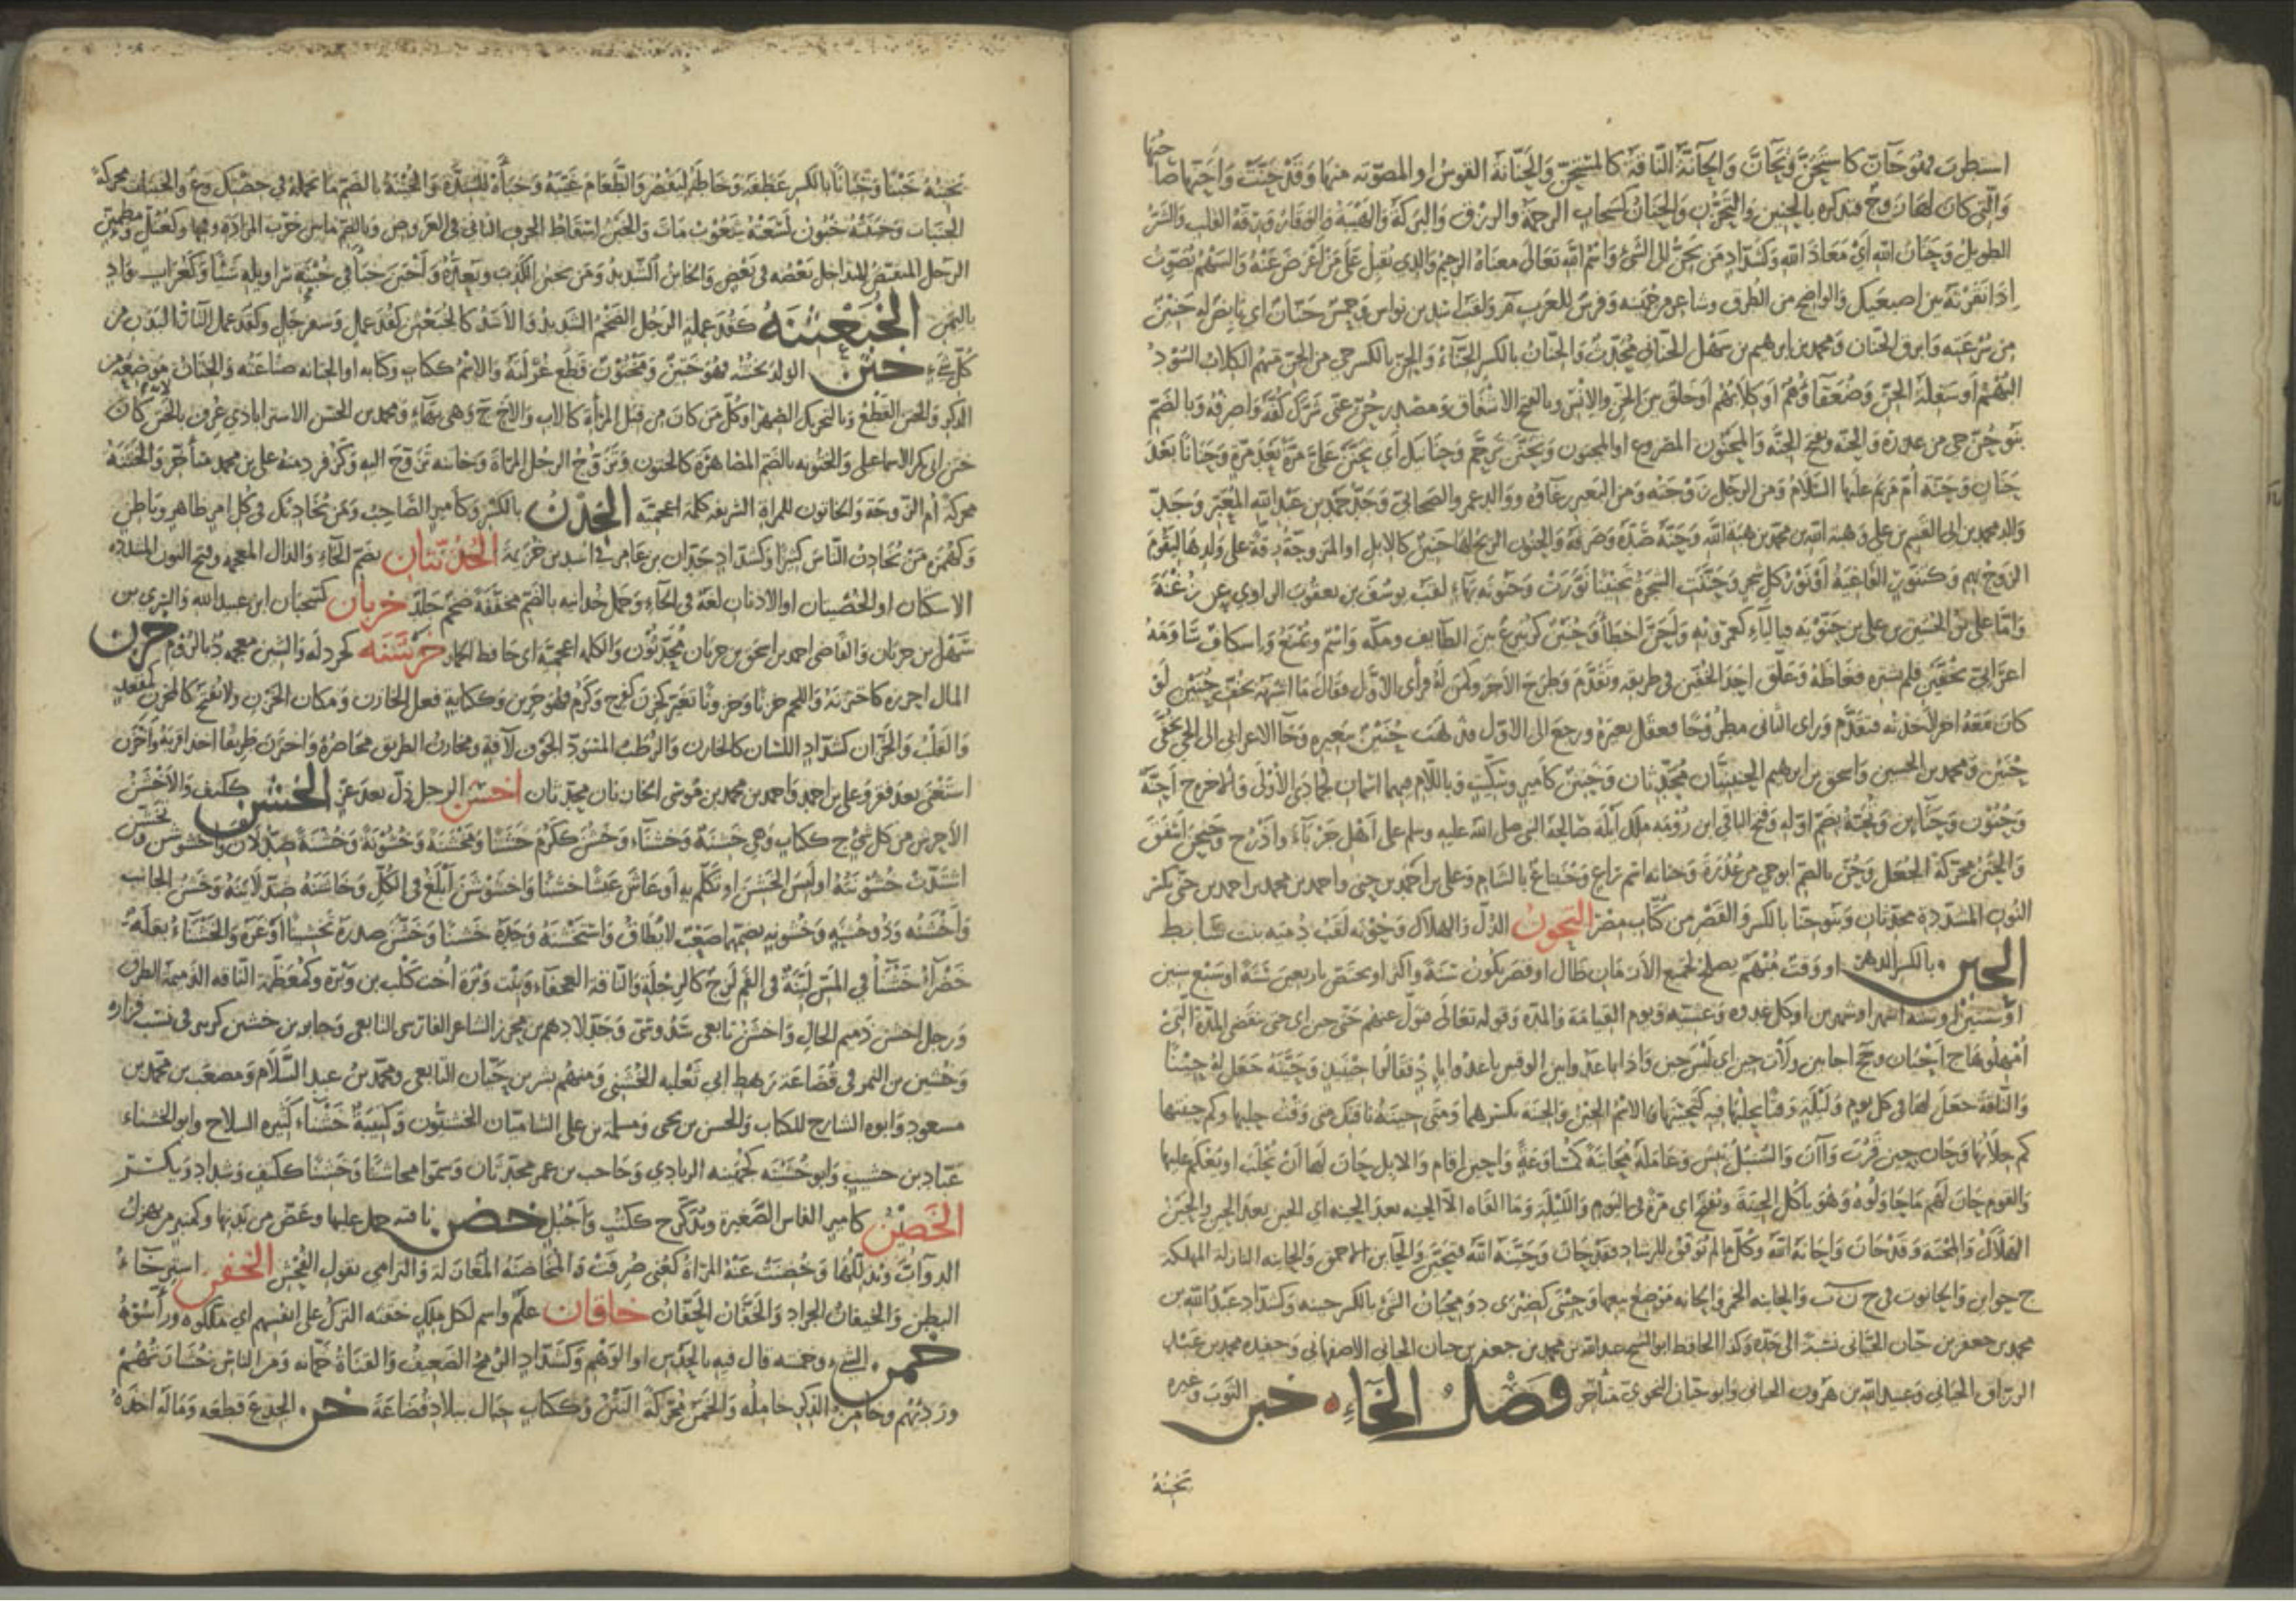 استطرب فهو حان كاستحن وتحان والحانة الناقة كالمستحن والحنانة القوس او المصوتة منها وقد حنت واحنها صاحبها
والتي كان لها زوج فتذكره بالحنين والتحزن والحنان كسحاب الرحمة والرزق والبركة والهيبة والوقار ورقة القلب والشر
الطويل وحنان الله اي معاذ الله وكشداد من يحن الى الشئ واسم الله تعالى معناه الرحيم والذي يقبل على من اعرض عنه والسهم يصوت
اذا نقرته بين اصبعيك والواضح من الطرق وشاعر من جهينة وفرس للعرب م ولقب اسد بن نواس وخمس حنان اي بائص له حنين
من سرعته وابرق الحنان ومحمد بن ابرهيم بن سهل الحناني محدث والحنان بالكسر الحناء والحن بالكسر حي من الجن منهم الكلاب السود
البهم او سفلة الجن وضعفاؤهم او كلابهم او خلق بين الجن والانس وبالفتح الاشفاق ومصدر حن عني شرك كفه واصرفه وبالضم
بنو حن حي من عذرة والحنة ويفتح الجنة والمحنون المصروع او المجنون وتحنن ترحم وحنانيك اي تحنن علي مرة بعد مرة وحنانا بعد
حنان وحنة ام مريم عليها السلام ومن الرجل زوجته ومن البعير رغاؤه ووالد عمرو الصحابي وجد حمد بن عبد الله المعبر وجد
والد محمد بن ابي القسم بن علي وهبة الله بن محمد بن هبة الله وحنه صده وصرفه والحنون الريح لها حنين كالابل او المتزوجة رقة على ولدها ليقوم
الزوج بهم وكتنور الفاغية او نور كل شجر وحننت الشجرة تحنينا نورت وحنونة بهاء لقب يوسف بن يعقوب الراوي عن زغبة
واما علي بن الحسين بن علي بن حنويه فبالياء كعمرويه واحن اخطأ وحنين كزبير ع بين الطايف ومكه واسم ويمنع واسكاف ساومه
اعرابي بخفين فلم يشتره فغاظه وعلق احد الخفين في طريقه وتقدم وطرح الاخر وكمن له فراى الاول فقال ما اشبهه بخف حنين لو
كان معه اخر لاخذته فتقدم وراى الثاني مطروحا فعقل بعيره ورجع الى الاول فذهب حنين ببعيره وجآ الاعرابي الى الحي بخفي
حنين ومحمد بن الحسين واسحق بن ابرهيم الحنينيان محدثان وحنين كامير وسكيت وباللام فيهما اسمان لجمادى الاولى والاخرة ج احنة
وحنون وحنائن ويحنة بضم اوله وفتح الباقي ابن روبه ملك ايلة صالحه النبي صلى الله عليه وسلم على اهل جرباء واذرح وحنحن اشفق
والحنن محركة الجعل وحن بالضم ابو حي من عذرة وحنانة اسم راع وحنياع بالشام وعلي بن احمد بن حني واحمد بن محمد بن احمد بن حني بكسر
النون المشددة محدثان وبنو حنا بالكسر والقصر من كتاب مصر التحون الذل والهلاك وحونه لقب دميه بنت سابط
الحين بالكسر الدهر او وقت مبهم يصلح لجميع الازمان طال او قصر يكون سنة واكثر او يختص باربعين سنة او سبع سنين
او سنتين او ستة اشهر او شهرين او كل غدوه وعشيه ويوم القيامة والمدة وقوله تعالى فتول عنهم حتى حين اي حتى تنقضي المدة التي
امهلوها ج احيان وجج احايين ولات حين اي ليس حين واذا باعدوا بين الوقتين باعدوا باذ فقالوا حينيذ وحينه جعل له حينا
والناقة جعل لها في كل يوم وليلة وقتا يحلبها فيه كتحينها والاسم الحين والحينة بكسرهما ومتى حينة ناقتك متى وقت حلبها وكم حينتها
كم حلابها وحان حين قرب وآن والسنبل يبس وعامله محاينة كمساوعة واحين اقام والابل حان لها ان تحلب او يعكم عليها
والقوم حان لهم ما حاولوه وهو ياكل الحينة ويفتح اي مرة في اليوم والليلة وما القاه الا الحينة بعد الحينة اي الحين بعد الحين والحين
الهلاك والمحنة وقد حان واحانه الله وكل ما لم يوفق للرشاد فقد حان وحينه الله فتحين والحاين الاحمق والحاينة النازلة المهلكة
ج حواين والحانوت في ح ن ت والحانية الخمر والحانة موضع بيعها وحيني كضيزى د ومحيان الشئ بالكسر حينه وكشداد عبد الله بن
محمد بن جعفر بن حيان الحياني نسبة الى جده وكذا الحافظ ابو الشيخ عبد الله بن محمد بن جعفر بن حيان الحياني الاصبهاني وحفيده محمد بن عبد
الرزاق الحياني وعبيد الله بن هرون الحياني وابو حيان النحوي متأخر فصل الخآء خبن الثوب وغيره
يخبنه
يخبنه خبنا وخبانا بالكسر عطفه وخاطه ليقصر والطعام غيبه وخبأه للشدة والخبنة بالضم ما تحمله في حضنك وع والخبنات محركة
الخنبات وخبنته خبون لشعبته شعوب مات والخبن اسقاط الحرف الثاني في العروض وبالضم ما بين خرب المزادة وفمها وكعتل ومطمئن
الرجل المتقبض المتداخل بعضه في بعض والخابن الشديد ومن يخبن الكذب ويعده واخبن خبأ في خبنة سراويله شيئا وكغراب واد
باليمن الخبعثنة كقذعملة الرجل الضخم الشديد والاسد كالخبعثن كقذعمل وسفرجل وكقذعمل التار البدن من
كل شئ ختن الولد يختنه فهو ختين ومختون قطع غرلته والاسم ككتاب وكتابه او الختانه صناعته والختان موضعه من
الذكر والختن القطع وبالتحريك الصهر او كل من كان من قبل المرأة كالاب والاخ ج وهي بهاء ومحمد بن الحسن الاسترابادي عرف بالختن كان
ختن ابي بكر الاسماعيلي والختونه بالضم المصاهرة كالختون وتزوج الرجل المراة وخاتنه تزوج اليه وكزفر دمنه علي بن محمد متأخر والختنة
محركة ام الزوجة والخاتون للمراة الشريفه كلمة اعجمية الخدن بالكسر وكامير الصاحب ومن يخادنك في كل امر ظاهر وباطن
وكهمزة من يخادن الناس كثيرا وكشداد خدان بن عامر في اسد بن خزيمة الخذنتان بضم الخآء والذال المعجمه وفتح النون المشددة
الاسكتان او الخصيتان او الاذنان لغة في الحآء وجمل خذانيه بالضم مخففة ضخم جلد خربان كسحبان ابن عبيد الله والسري بن
سهل بن خربان والقاضي احمد بن اسحق بن خربان محدثون والكلمه اعجمية اي حافظ الحمار خرشنه كحردله والشين معجمه د بالروم خزن
المال احرزه كاختزنه واللحم خزنا وخزونا تغير كخزن كفرح وكرم فهو خزين وككتابة فعل الخازن ومكان الخزن ولا يفتح كالمخزن كمقعد
والقلب والخزان كشداد اللسان كالخازن والرطب المسود الجوف لآفة ومخازن الطريق مخاصره واختزن طريقا اخذ اقربه واخزن
استغنى بعد فقر وعلي بن احمد واحمد بن محمد بن موسى الخازنان محدثان اخسن الرجل ذل بعد عز الخشن ككتف والاخشن
الاحرش من كل شئ ج ككتاب وهي خشنة وخشنآء وخشن ككرم خشنا ومخشنة وخشونة وخشنة ضد لان واخشوشن وتخشن
اشتدت خشونته او لبس الخشن او تكلم به او عاش عيشا خشنا واخشوشن ابلغ في الكل وخاشنه ضد لاينه وخشن الجانب
واخشنه وذو خشنه وخشونه بضمهما صعب لا يطاق واستخشنه وجده خشنا وخشن صدره تخشينا اوغره والخشنآء بقلة
خضرآء خشنآء في المس لينة في الفم لزج كالرجلة والناقة العجفآء وبنت وبرة اخت كلب بن وبرة وكمعظمة الناقه الذميمة الطرق
ورجل اخشن ذميم الحال واخشن تابعي سدوسي وجد لادهم بن محرز الشاعر الفارس التابعي وجابر بن خشين كزبير في نسب فزاره
وخشين بن النمر في قضاعة رهط ابي ثعلبه الخشني ومنهم بشر بن حيان التابعي ومحمد بن عبد السلام ومصعب بن محمد بن
مسعود وابوه الشارح للكتاب والحسن بن يحيى ومسلمة بن علي الشاميان الخشنيون وكتيبة خشنآء كثيره السلاح وابو الخشناء
عباد بن حسيب وابو خشينه كجهينه الزيادي وحاجب بن عمر محدثان وسموا مخاشنا وخشنا ككتف وشداد ويكسر
الخصين كامير الفاس الصغيرة ويذكر ج ككتب واخبل خضن ناقته حمل عليها وعض من بدنها وكمنبر من يهزل
الدواب ويذللها وخضنت عنه المراة كعني صرفت والمخاضنة المغازلة والترامي بقول الفحش الخفن استرخآء
البطن والخيفان الجراد والخفان الخيفان خاقان علم واسم لكل ملك خقنه الترك على انفسهم اي ملكوه ورأسوه
خمن الشئ وخمنه قال فيه بالحدس او الوهم وكشداد الرمح الضعيف والقناة خمانه ومن الناس خشارتهم
ورديهم وخامن الذكر خامله والخمن محركة النتن وككتاب جبال ببلاد قضاعة خن الجذع قطعه وماله اخذه